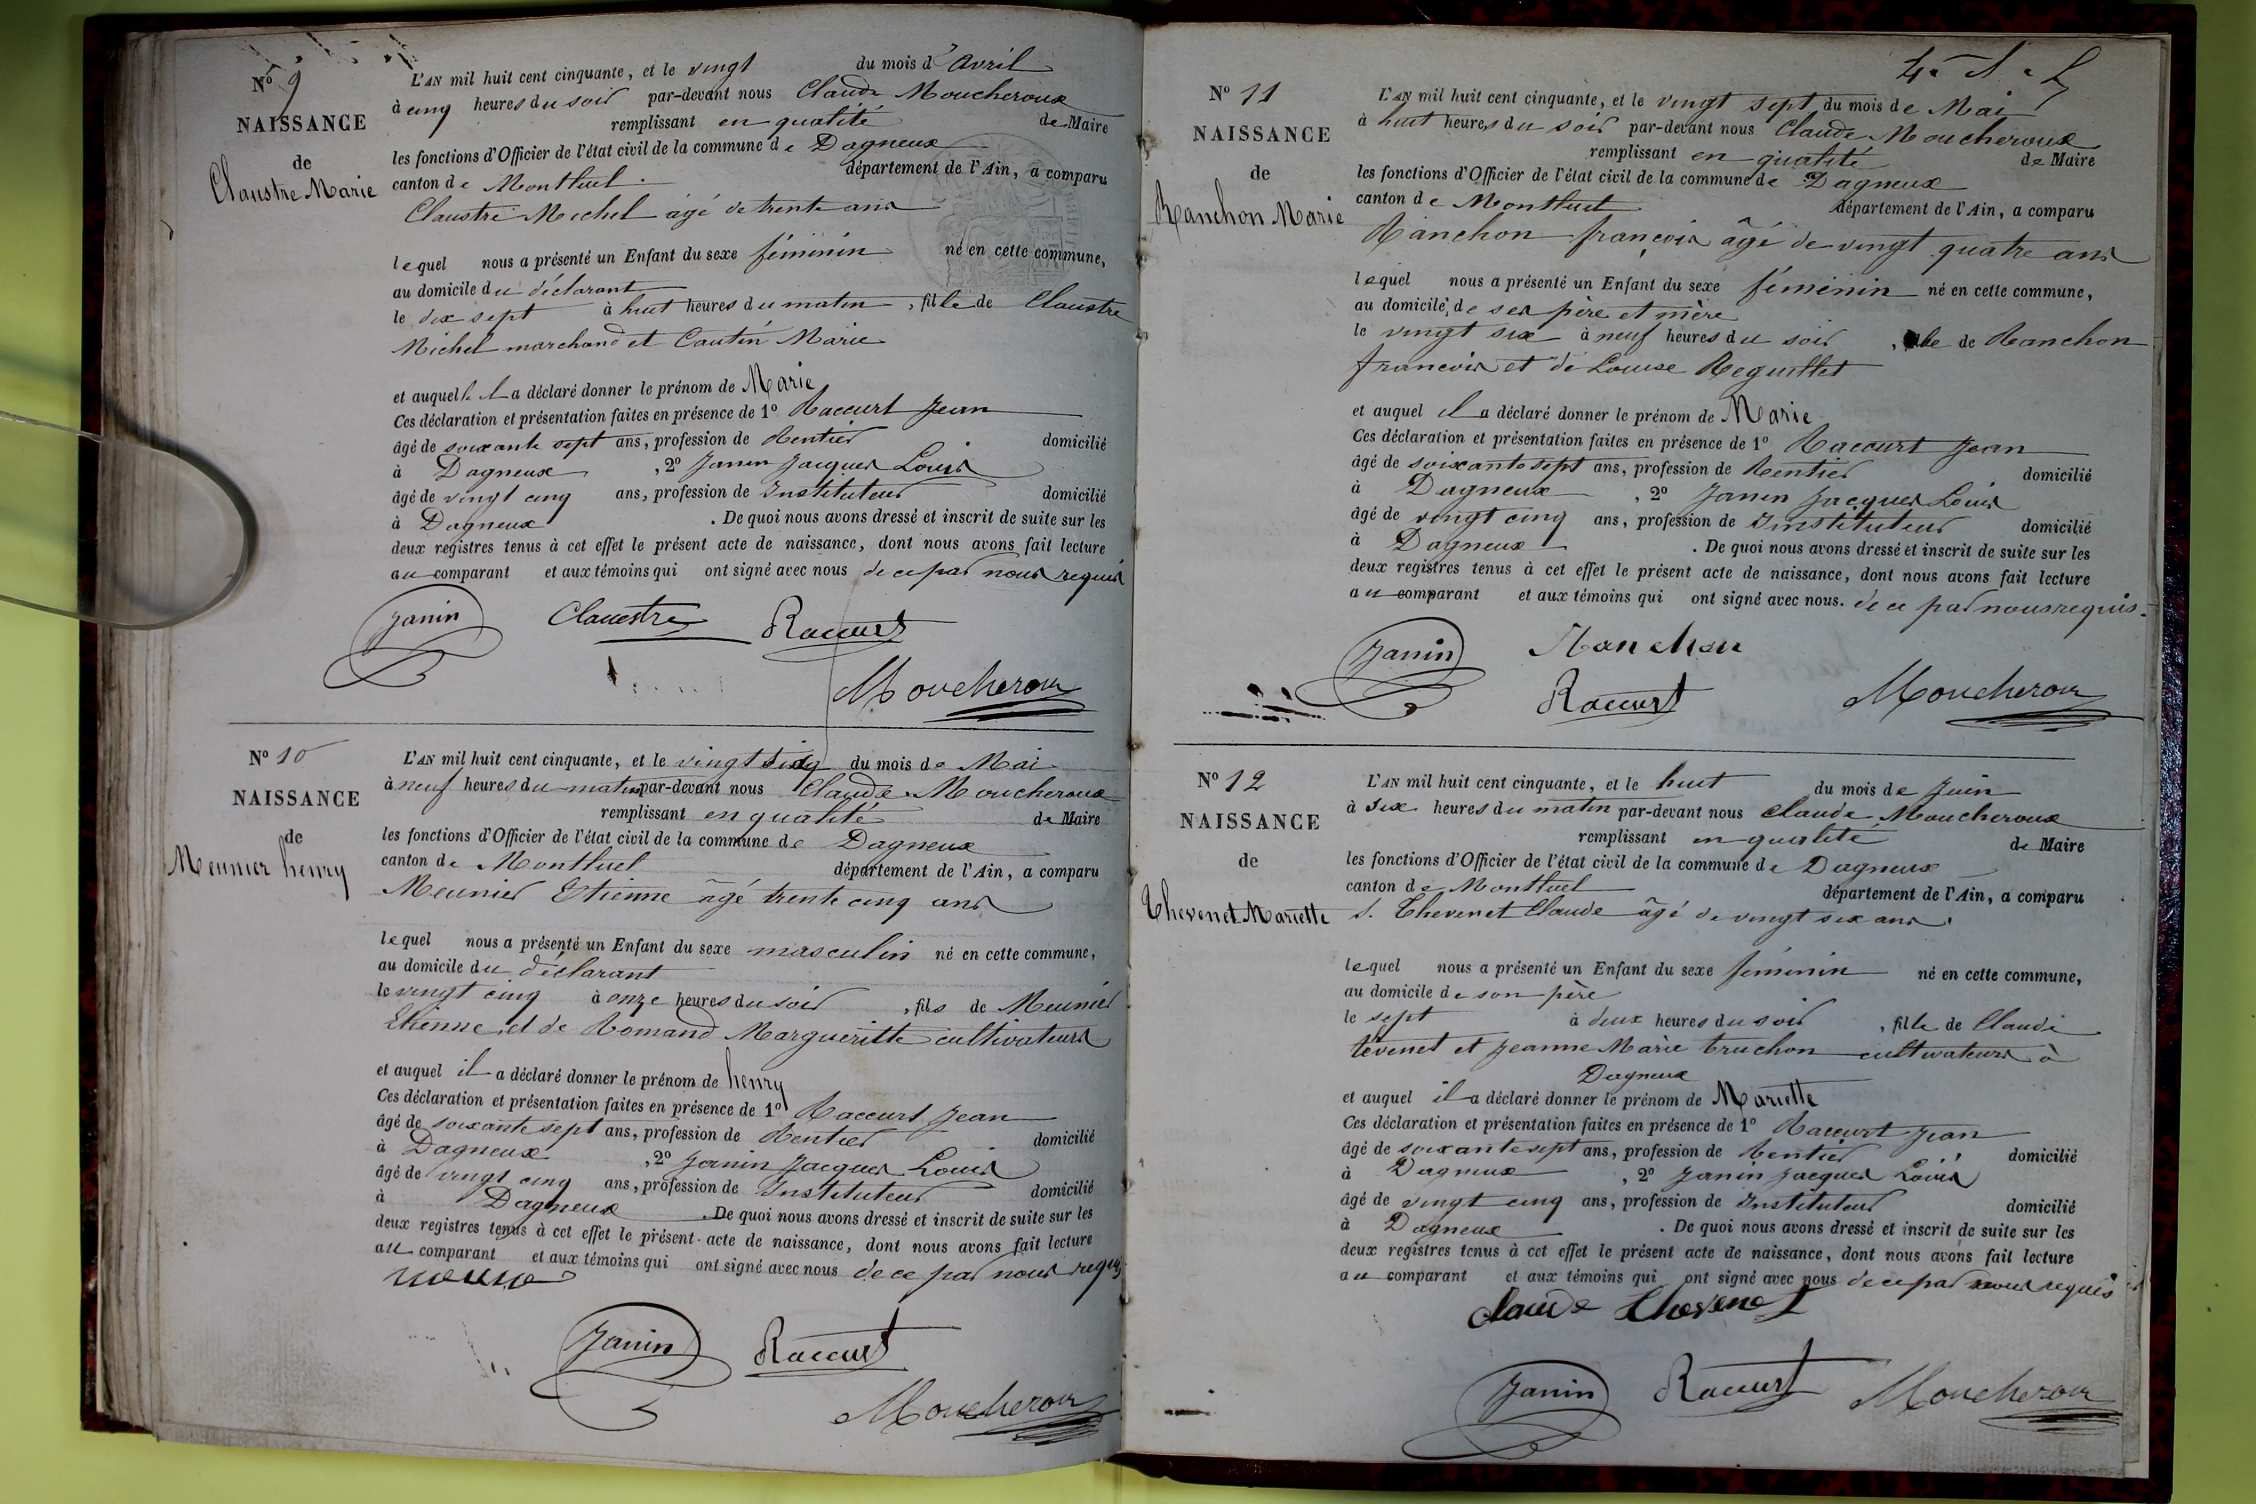 N° 9
NAISSANCE
de
Claustre Marie
L'AN mil huit cent cinquante, et le vingt du mois d'avril
à cinq heures du soir par-devant nous Claude Moucheroux
remplissant en qualité de Maire
les fonctions d'Officier de l'état civil de la commune de Dagneux
canton de Montluel département de l'Ain, a comparu
Claustre Michel âgé de trente ans
lequel nous a présenté un Enfant du sexe féminin né en cette commune,
au domicile du déclarant
le dix sept à huit heures du matin, fille de Claustre
Michel marchand et Cautin Marie
et auquel il a déclaré donner le prénom de Marie
Ces déclaration et présentation faites en présence de 1° Raccurt Jean
âgé de soixante sept ans, profession de Rentier domicilié
à Dagneux, 2° Janin Jacques Louis
âgé de vingt cinq ans, profession de Instituteur domicilié
à Dagneux. De quoi nous avons dressé et inscrit de suite sur les
deux registres tenus à cet effet le présent acte de naissance, dont nous avons fait lecture
au comparant et aux témoins qui ont signé avec nous de ce par nous requis
Janin Claustre Raccurt
Moucheroux
N° 10
NAISSANCE
de
Meunier henry
L'AN mil huit cent cinquante, et le vingt du mois de Mai
à neuf heures du matin par-devant nous Claude Moucheroux
remplissant en qualité de Maire
les fonctions d'Officier de l'état civil de la commune de Dagneux
canton de Montluel département de l'Ain, a comparu
Meunier Etienne âgé trente cinq ans
lequel nous a présenté un Enfant du sexe masculin né en cette commune,
au domicile du déclarant
le vingt cinq à onze heures du soir, fils de Meunier
Etienne et de Romand Margueritte cultivateurs
et auquel il a déclaré donner le prénom de henry
Ces déclaration et présentation faites en présence de 1° Raccurt Jean
âgé de soixante sept ans, profession de Rentier domicilié
à Dagneux, 2° Janin Jacques Louis
âgé de vingt cinq ans, profession de Instituteur domicilié
à Dagneux. De quoi nous avons dressé et inscrit de suite sur les
deux registres tenus à cet effet le présent acte de naissance, dont nous avons fait lecture
au comparant et aux témoins qui ont signé avec nous de ce par nous requis
Janin Raccurt
Moucheroux
N° 11
NAISSANCE
de
Ranchon Marie
L'AN mil huit cent cinquante, et le vingt sept du mois de Mai
à huit heures du soir par-devant nous Claude Moucheroux
remplissant en qualité de Maire
les fonctions d'Officier de l'état civil de la commune de Dagneux
canton de Montluel département de l'Ain, a comparu
Ranchon françois âgé de vingt quatre ans
lequel nous a présenté un Enfant du sexe féminin né en cette commune,
au domicile de ses père et mère
le vingt six à neuf heures du soir, fille de Ranchon
francois et de Louise Reguillet
et auquel il a déclaré donner le prénom de Marie
Ces déclaration et présentation faites en présence de 1° Raccurt Jean
âgé de soixante sept ans, profession de Rentier domicilié
à Dagneux, 2° Janin Jacques Louis
âgé de vingt cinq ans, profession de Instituteur domicilié
à Dagneux. De quoi nous avons dressé et inscrit de suite sur les
deux registres tenus à cet effet le présent acte de naissance, dont nous avons fait lecture
au comparant et aux témoins qui ont signé avec nous. de ce par nous requis.
Janin Ranchon
Raccurt Moucheroux
N° 12
NAISSANCE
de
Thevenet Mariette
L'AN mil huit cent cinquante, et le huit du mois de Juin
à six heures du matin par-devant nous Claude Moucheroux
remplissant en qualité de Maire
les fonctions d'Officier de l'état civil de la commune de Dagneux
canton de Montluel département de l'Ain, a comparu
Thevenet Claude âgé de vingt six ans
lequel nous a présenté un Enfant du sexe féminin né en cette commune,
au domicile de son père
le sept à deux heures du soir, fille de Claude
tevenet et Jeanne Marie truchon cultivateurs à
Dagneux
et auquel il a déclaré donner le prénom de Mariette
Ces déclaration et présentation faites en présence de 1° Raccurt Jean
âgé de soixante sept ans, profession de Rentier domicilié
à Dagneux, 2° Janin Jacques Louis
âgé de vingt cinq ans, profession de Instituteur domicilié
à Dagneux. De quoi nous avons dressé et inscrit de suite sur les
deux registres tenus à cet effet le présent acte de naissance, dont nous avons fait lecture
au comparant et aux témoins qui ont signé avec nous de ce par nous requis
Claude Thevenet
Janin Raccurt Moucheroux